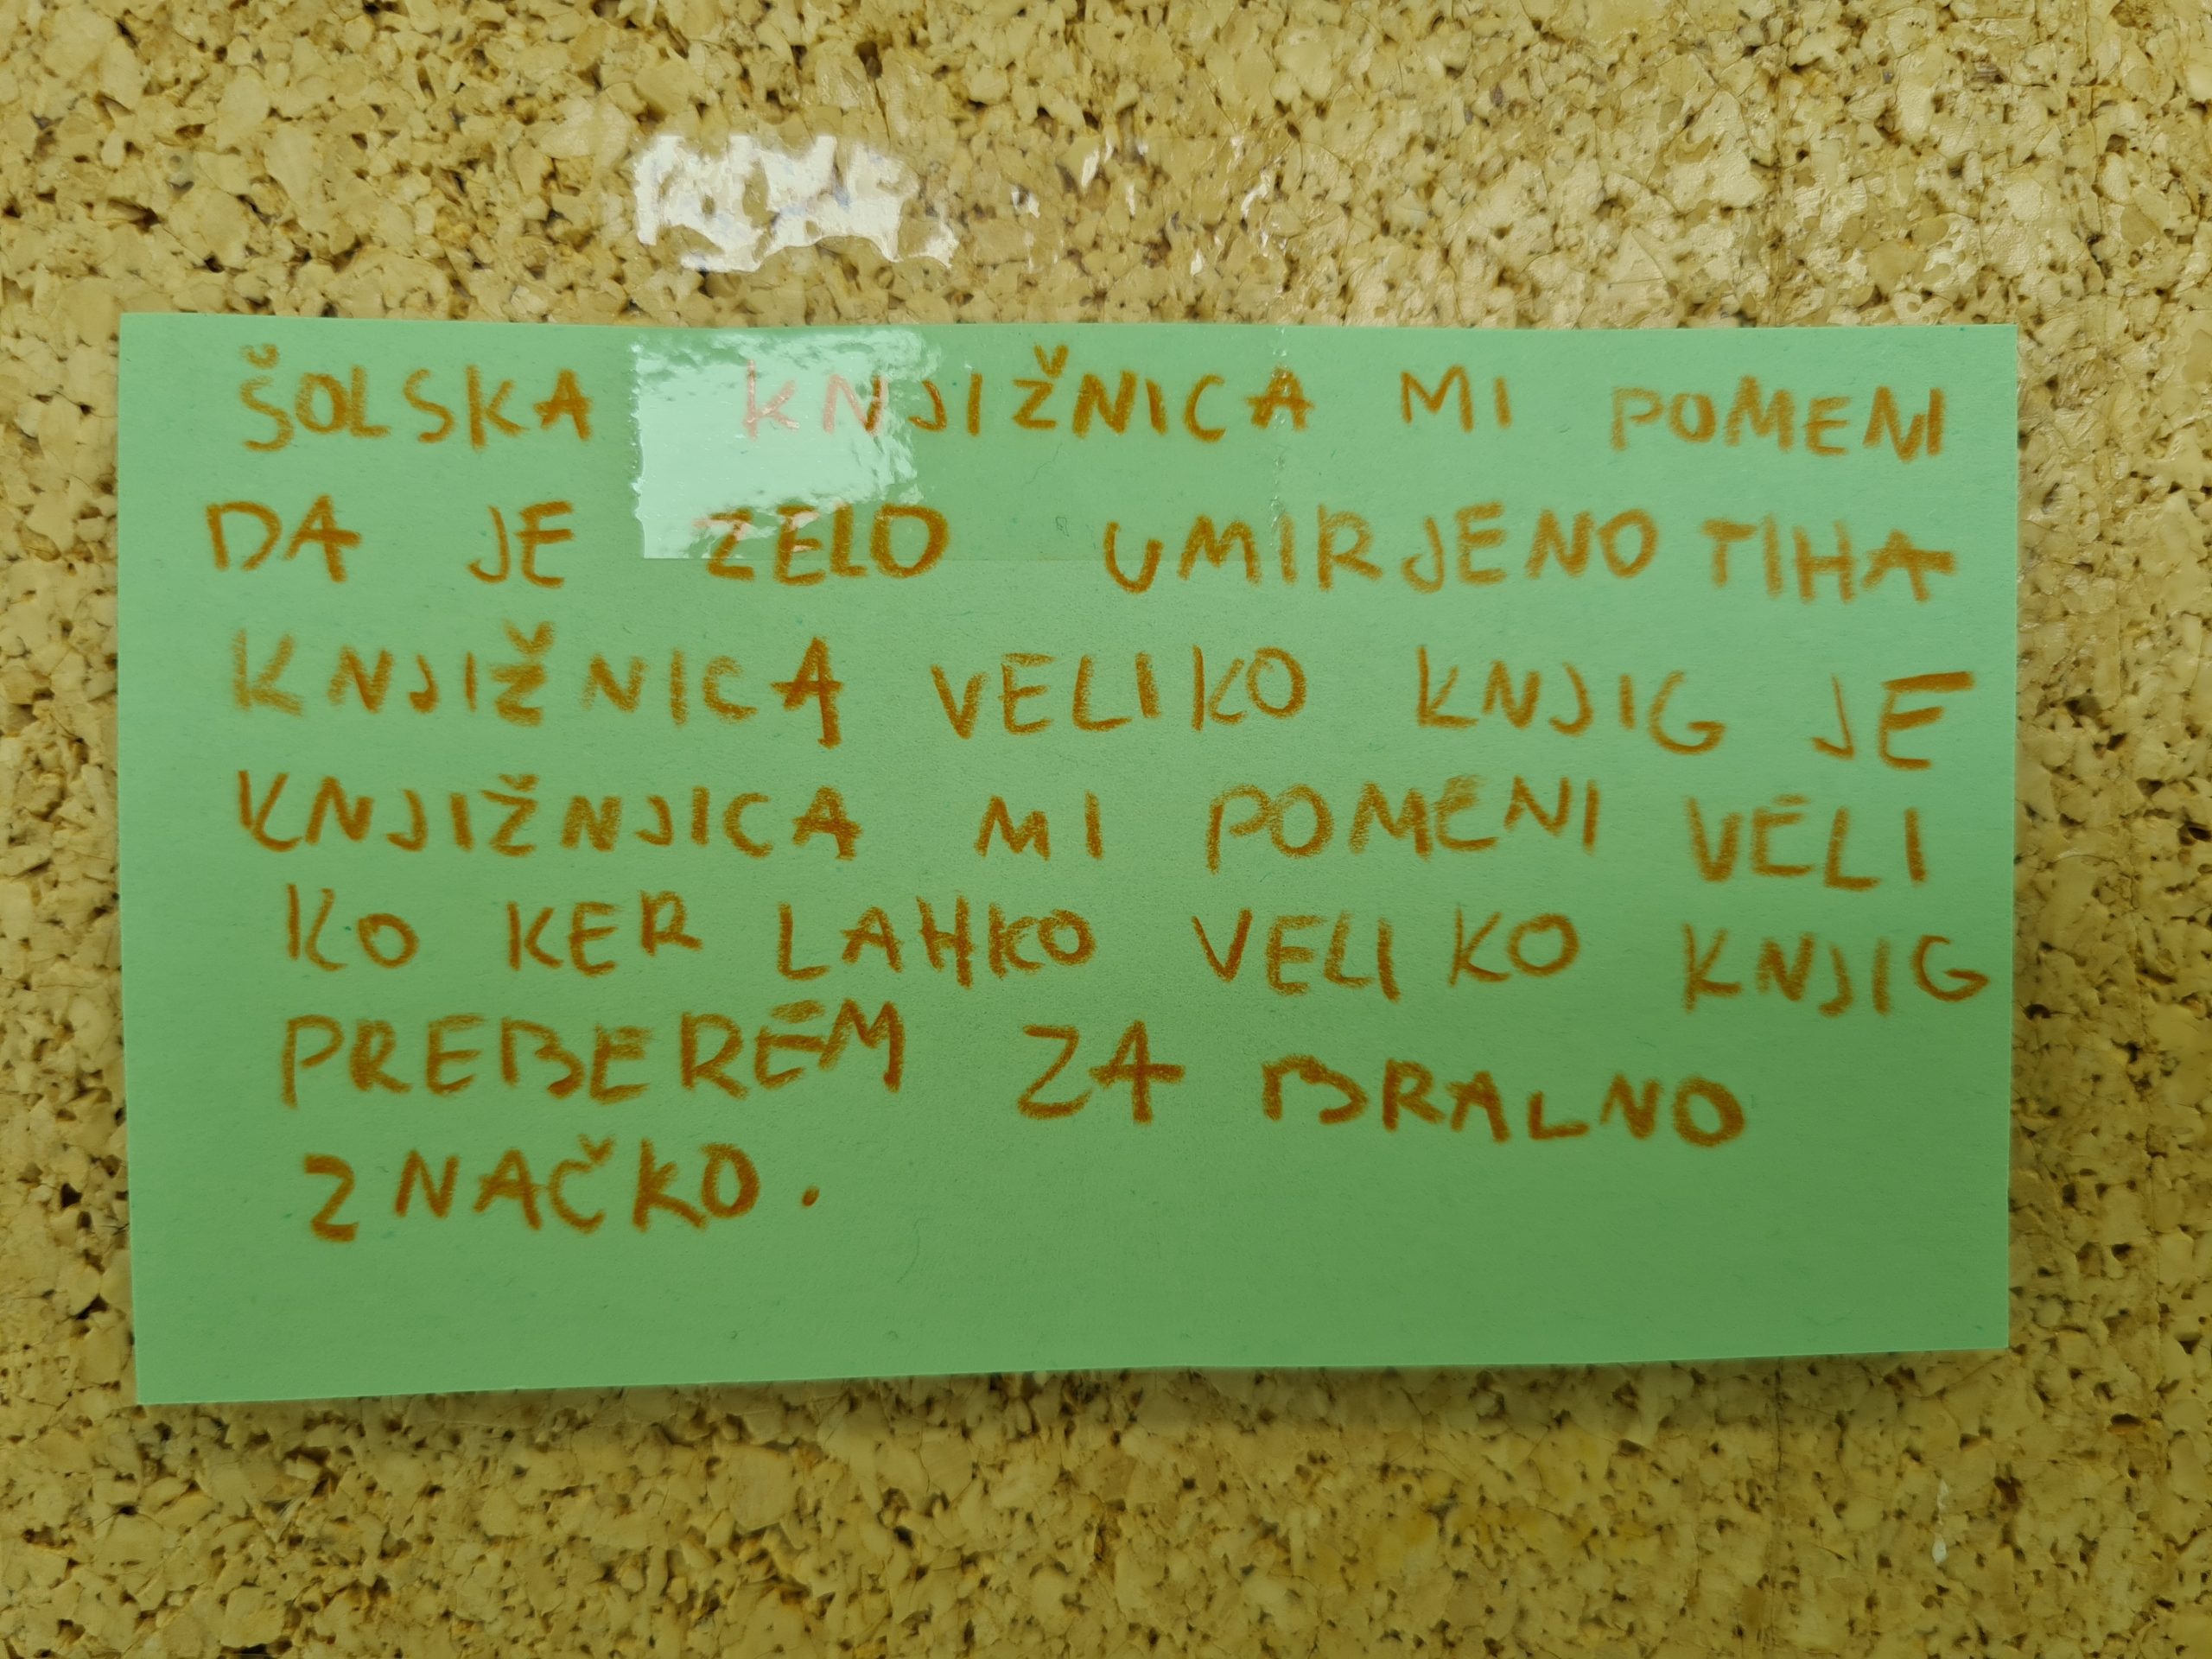 ŠOLSKA KNJIŽNICA MI POMENI
DA JE ZELO UMIRJENO TIHA
KNJIŽNICA VELIKO KNJIG JE
KNJIŽNJICA MI POMENI VELI
KO KER LAHKO VELIKO KNJIG
PREBEREM ZA BRALNO
ZNAČKO.